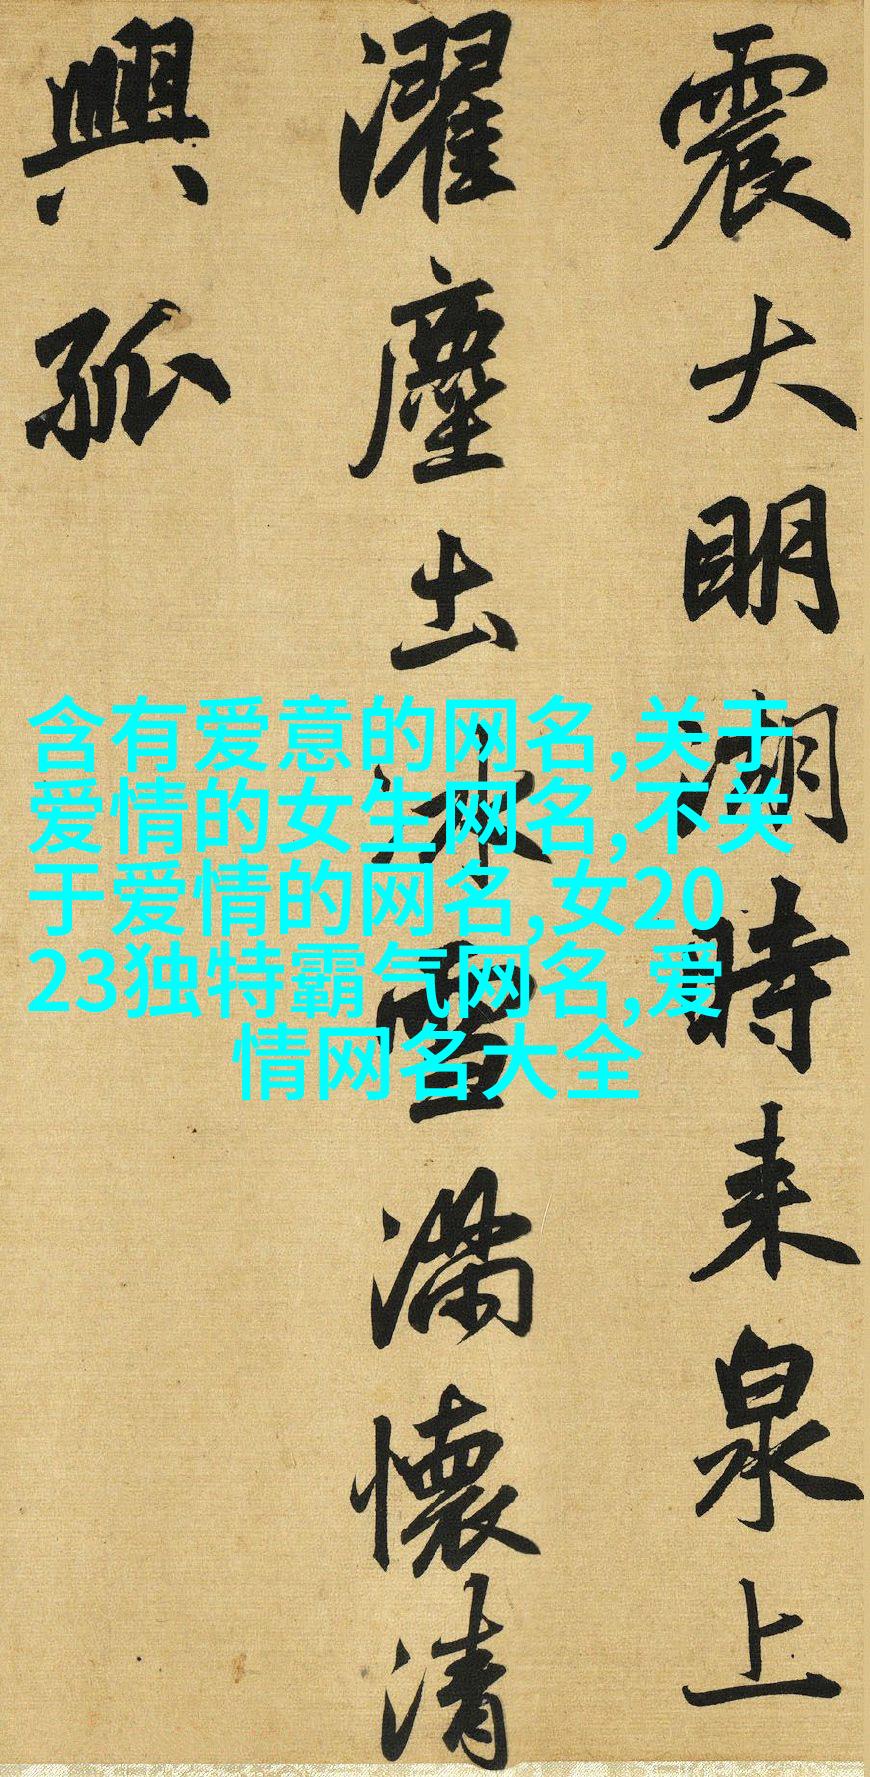 震大明湖時來泉上
濯塵土冰雪滿懷清
興孤
含有爱意的网名,关于
爱情的女生网名,不关
于爱情的网名,女20
23独特霸气网名,爱
情网名大全